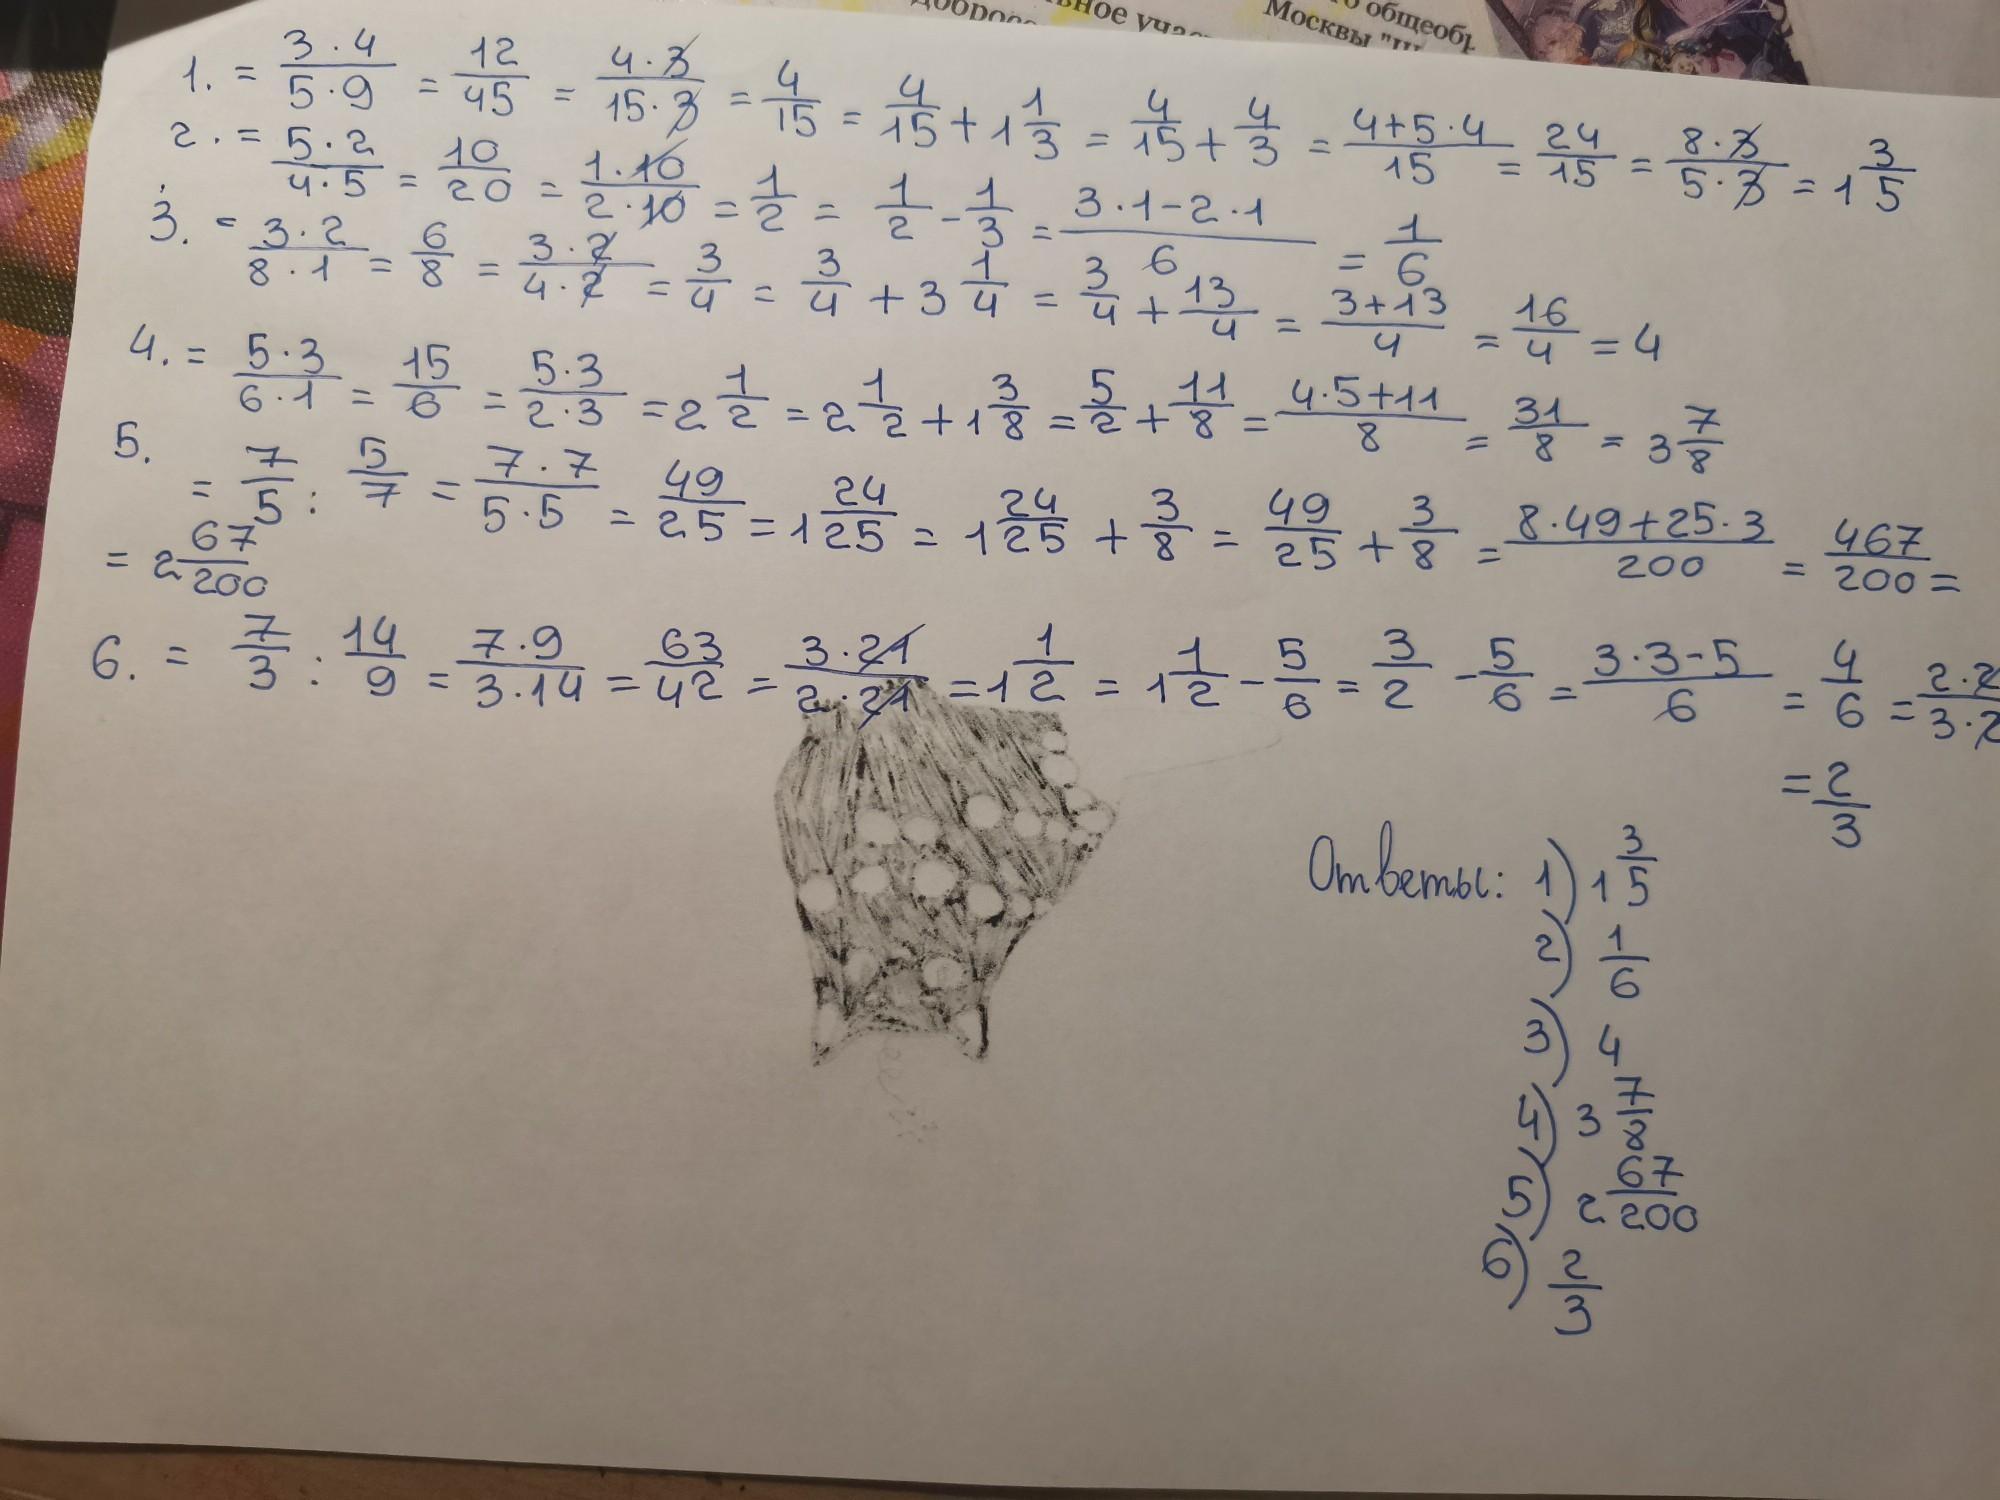 доброво
ьное учас
о общеобр
Москвы "Ш
1. = 3·4/5·9 = 12/45 = 4·3/15·3 = 4/15 = 4/15 + 1 1/3 = 4/15 + 4/3 = 4+5·4/15 = 24/15 = 8·3/5·3 = 1 3/5
2. = 5·2/4·5 = 10/20 = 1·10/2·10 = 1/2 = 1/2 - 1/3 = 3·1-2·1/6 = 1/6
3. = 3·2/8·1 = 6/8 = 3·2/4·2 = 3/4 = 3/4 + 3 1/4 = 3/4 + 13/4 = 3+13/4 = 16/4 = 4
4. = 5·3/6·1 = 15/6 = 5·3/2·3 = 2 1/2 = 2 1/2 + 1 3/8 = 5/2 + 11/8 = 4·5+11/8 = 31/8 = 3 7/8
5. = 7/5 : 5/7 = 7·7/5·5 = 49/25 = 1 24/25 = 1 24/25 + 3/8 = 49/25 + 3/8 = 8·49+25·3/200 = 467/200 =
= 2 67/200
6. = 7/3 : 14/9 = 7·9/3·14 = 63/42 = 3·21/2·21 = 1 1/2 = 1 1/2 - 5/6 = 3/2 - 5/6 = 3·3-5/6 = 4/6 = 2·2/3·2
= 2/3
Ответы: 1) 1 3/5
2) 1/6
3) 4
4) 3 7/8
5) 2 67/200
6) 2/3